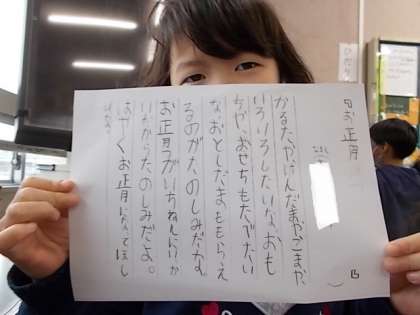 お正月
かるたや、けんだまや、こまや、
いろいろしたいな。おも
ちや、おせちもたべたい
な。おとしだまももらえ
るのがたのしみだなあ。
お正月がいちねんにいっか
いだからたのしみだよ。
はやくお正月になってほし
いな。